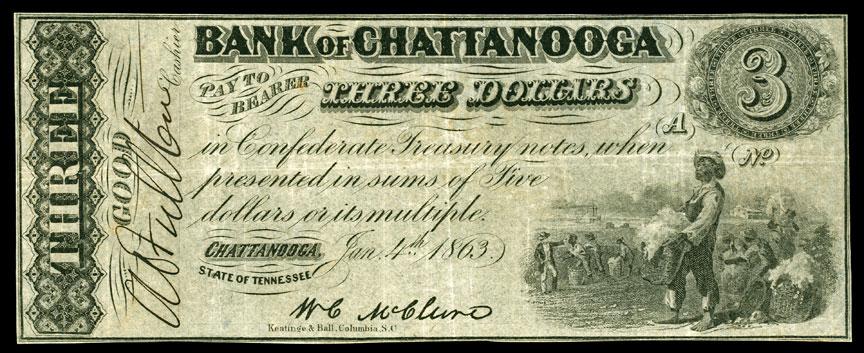 BANK OF CHATTANOOGA
3
THREE
GOOD
Cashier
PAY TO
BEARER
THREE DOLLARS
(A)
(No)
in Confederate Treasury notes, when
presented in sums of Five
dollars or its multiple.
CHATTANOOGA, Jan. 4th 1863.
STATE OF TENNESSEE
W C McClure
Keatinge & Ball, Columbia, S.C